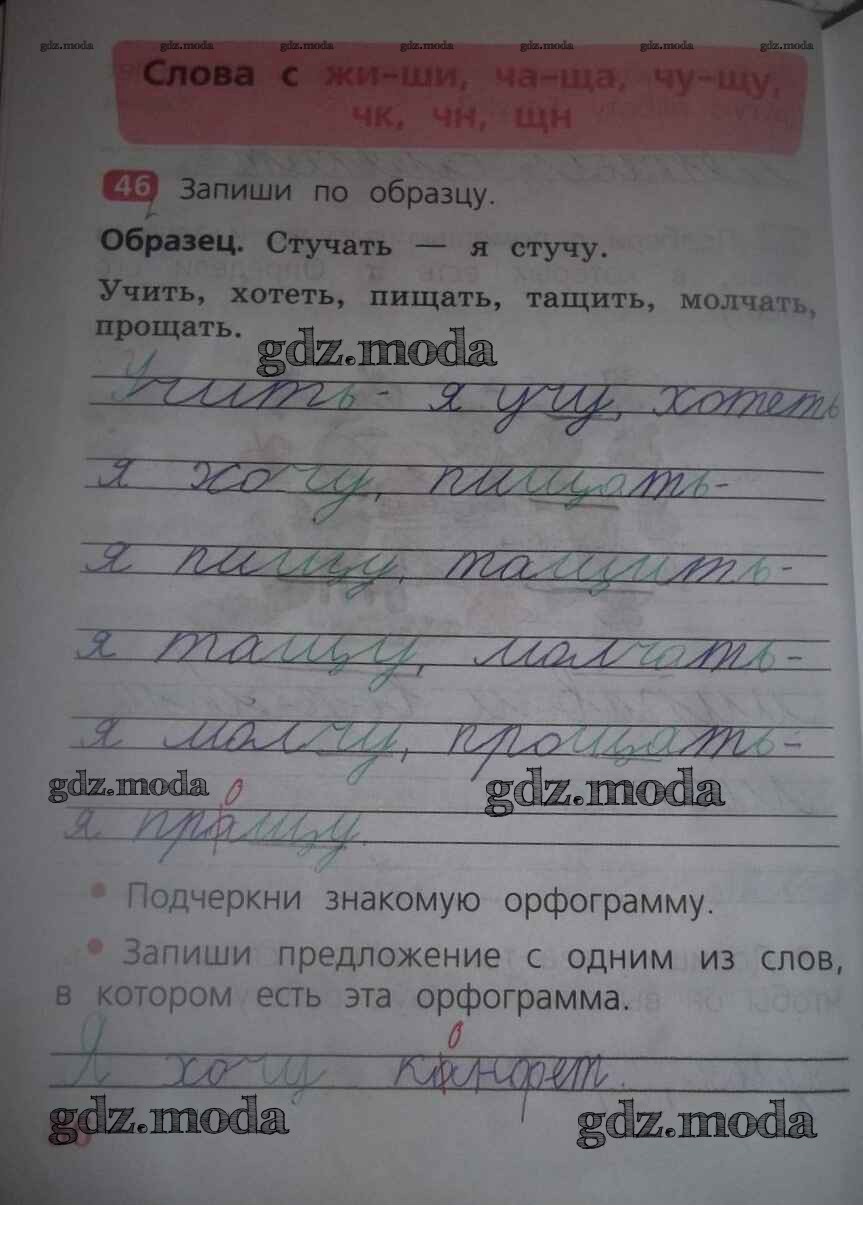 gdz.moda gdz.moda gdz.moda gdz.moda gdz.moda gdz.moda gdz.moda
Слова с жи–ши, ча–ща, чу–щу,
чк, чн, щн
46 Запиши по образцу.
Образец. Стучать — я стучу.
Учить, хотеть, пищать, тащить, молчать,
прощать.
gdz.moda
Учить - я учу, хотеть
я хочу, пищать-
я пищу, тащить-
я тащу, молчать-
я молчу, прощать-
gdz.moda о gdz.moda
я пращу.
• Подчеркни знакомую орфограмму.
• Запиши предложение с одним из слов,
в котором есть эта орфограмма.
о
Я хочу канфет.
gdz.moda gdz.moda